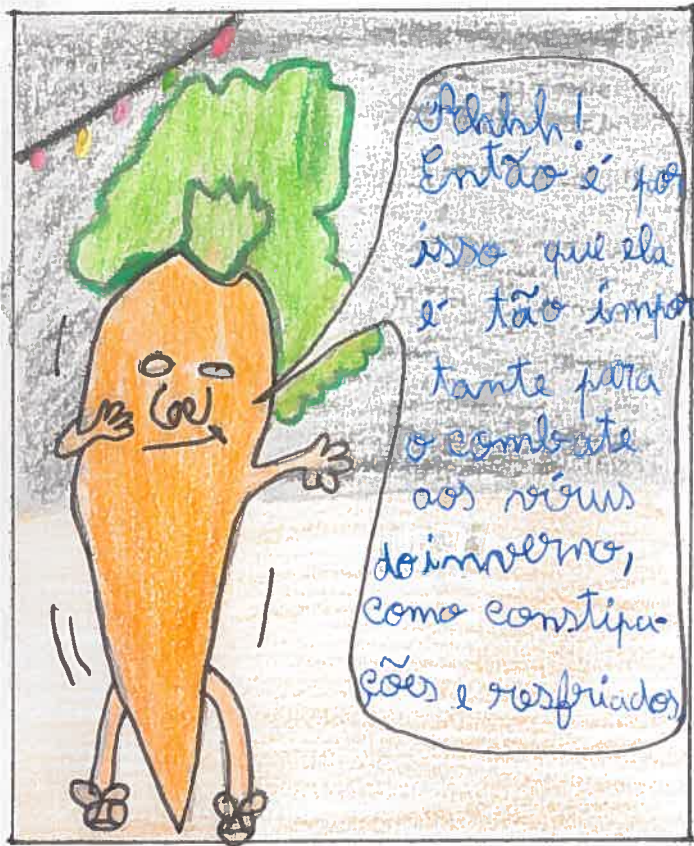 Ahhh!
Então é por
isso que ela
é tão impor
tante para
o combate
aos vírus
do inverno,
como constipa-
ções e resfriados